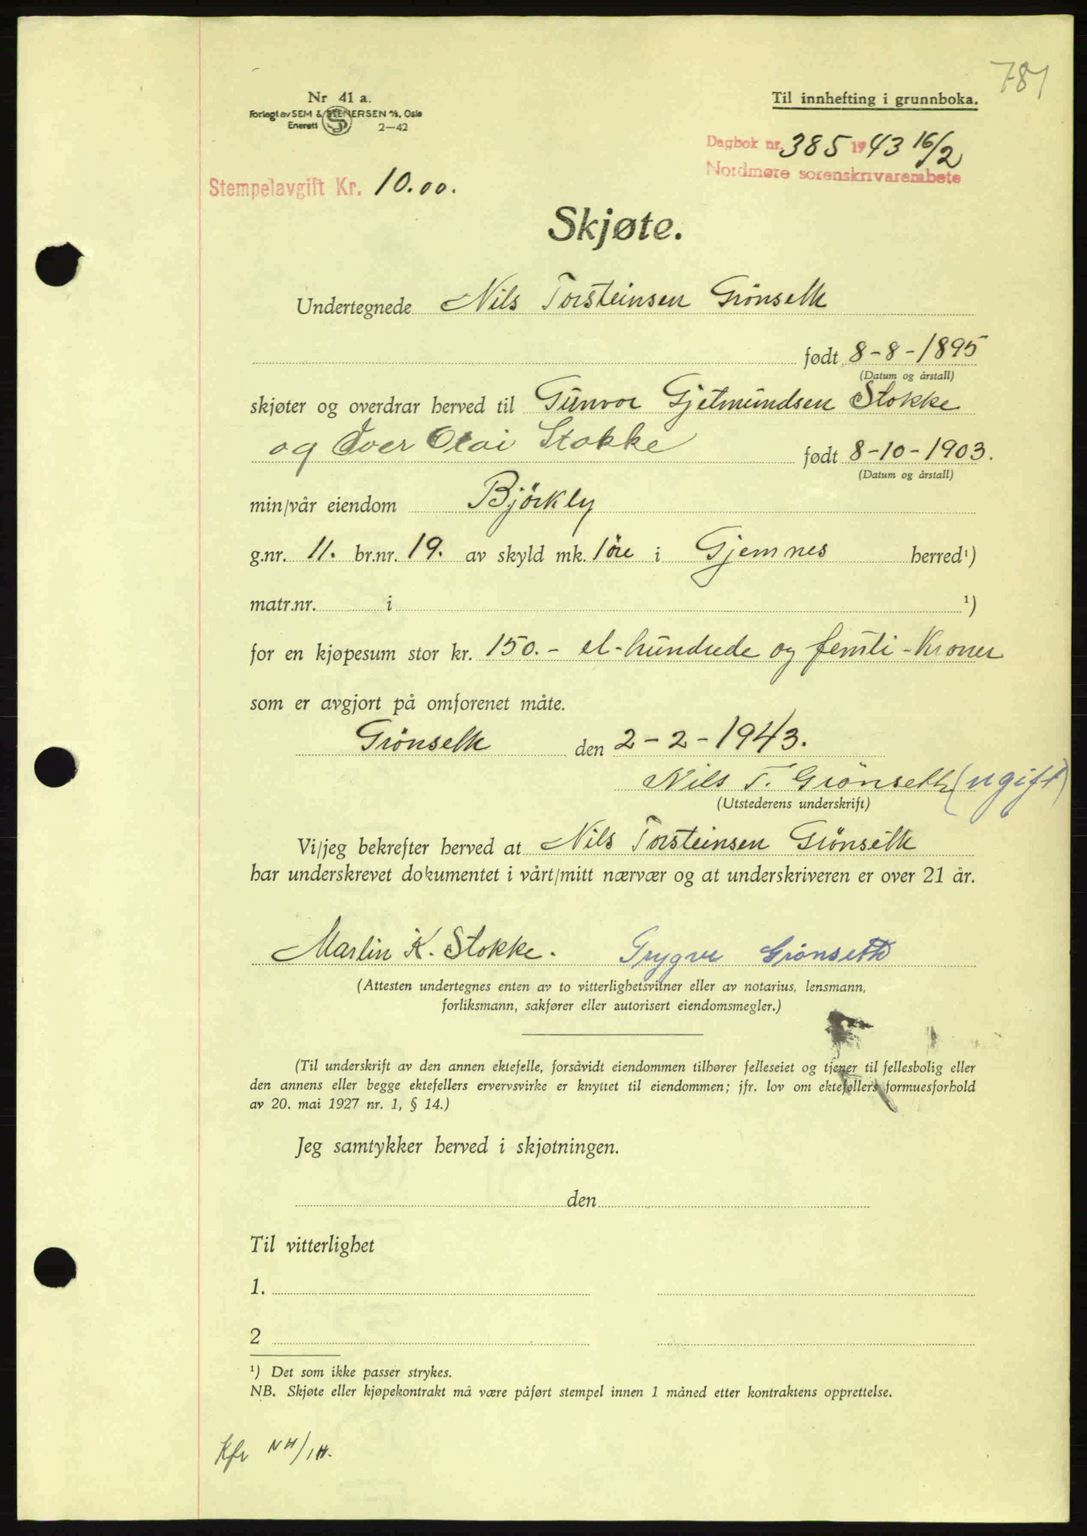 781
Nr 41 a.
Forlagt av SEM & STENERSEN A/S, Oslo
Enerett 2-42
Til innhefting i grunnboka.
Dagbok nr. 385 1943 16/2
Nordmøre sorenskriverembete
Stempelavgift Kr. 10.00.
Skjøte.
Undertegnede Nils Torsteinsen Grönseth
født 8-8-1895
(Datum og årstall)
skjøter og overdrar herved til Gunvor Gjetmundsen Stokke
og Iver Olai Stokke født 8-10-1903.
(Datum og årstall)
min/vår eiendom Björkly
g.nr. 11. br.nr. 19. av skyld mk. 1 öre i Gjemnes herred¹)
matr.nr. i ¹)
for en kjøpesum stor kr. 150.- et-hundrede og femti-Kroner
som er avgjort på omforenet måte.
Grönseth den 2-2-1943.
Nils T. Grönseth (ugift)
(Utstederens underskrift)
Vi/jeg bekrefter herved at Nils Torsteinsen Grönseth
har underskrevet dokumentet i vårt/mitt nærvær og at underskriveren er over 21 år.
Martin K. Stokke. Trygve Grönseth
(Attesten undertegnes enten av to vitterlighetsvitner eller av notarius, lensmann,
forliksmann, sakfører eller autorisert eiendomsmegler.)
(Til underskrift av den annen ektefelle, forsåvidt eiendommen tilhører felleseiet og tjener til fellesbolig eller
den annens eller begge ektefellers ervervsvirke er knyttet til eiendommen; jfr. lov om ektefellers formuesforhold
av 20. mai 1927 nr. 1, § 14.)
Jeg samtykker herved i skjøtningen.
den
Til vitterlighet
1.
2
¹) Det som ikke passer strykes.
NB. Skjøte eller kjøpekontrakt må være påført stempel innen 1 måned etter kontraktens opprettelse.
Kfr NH/IH.